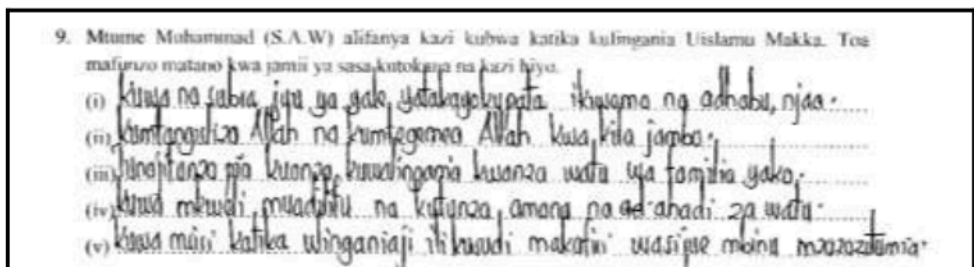 9. Mtume Muhammad (S.A.W) alifanya kazi kubwa katika kulingania Uislamu Makka. Toa
mafunzo matano kwa jamii ya sasa kutokana na kazi hiyo.
(i) kuwa na subra juu ya yale yatakayokupata ikiwamo na adhabu, njaa.
(ii) kumtanguliza Allah na kumtegemea Allah kwa kila jambo.
(iii) kwanza, kuwalingania kwanza watu wa familia yako.
(iv) kuwa mkweli muadilifu na kutunza amana na ahadi za watu.
(v) kuwa msiri katika ulinganiaji ili kusudi makafiri wasijue mbinu